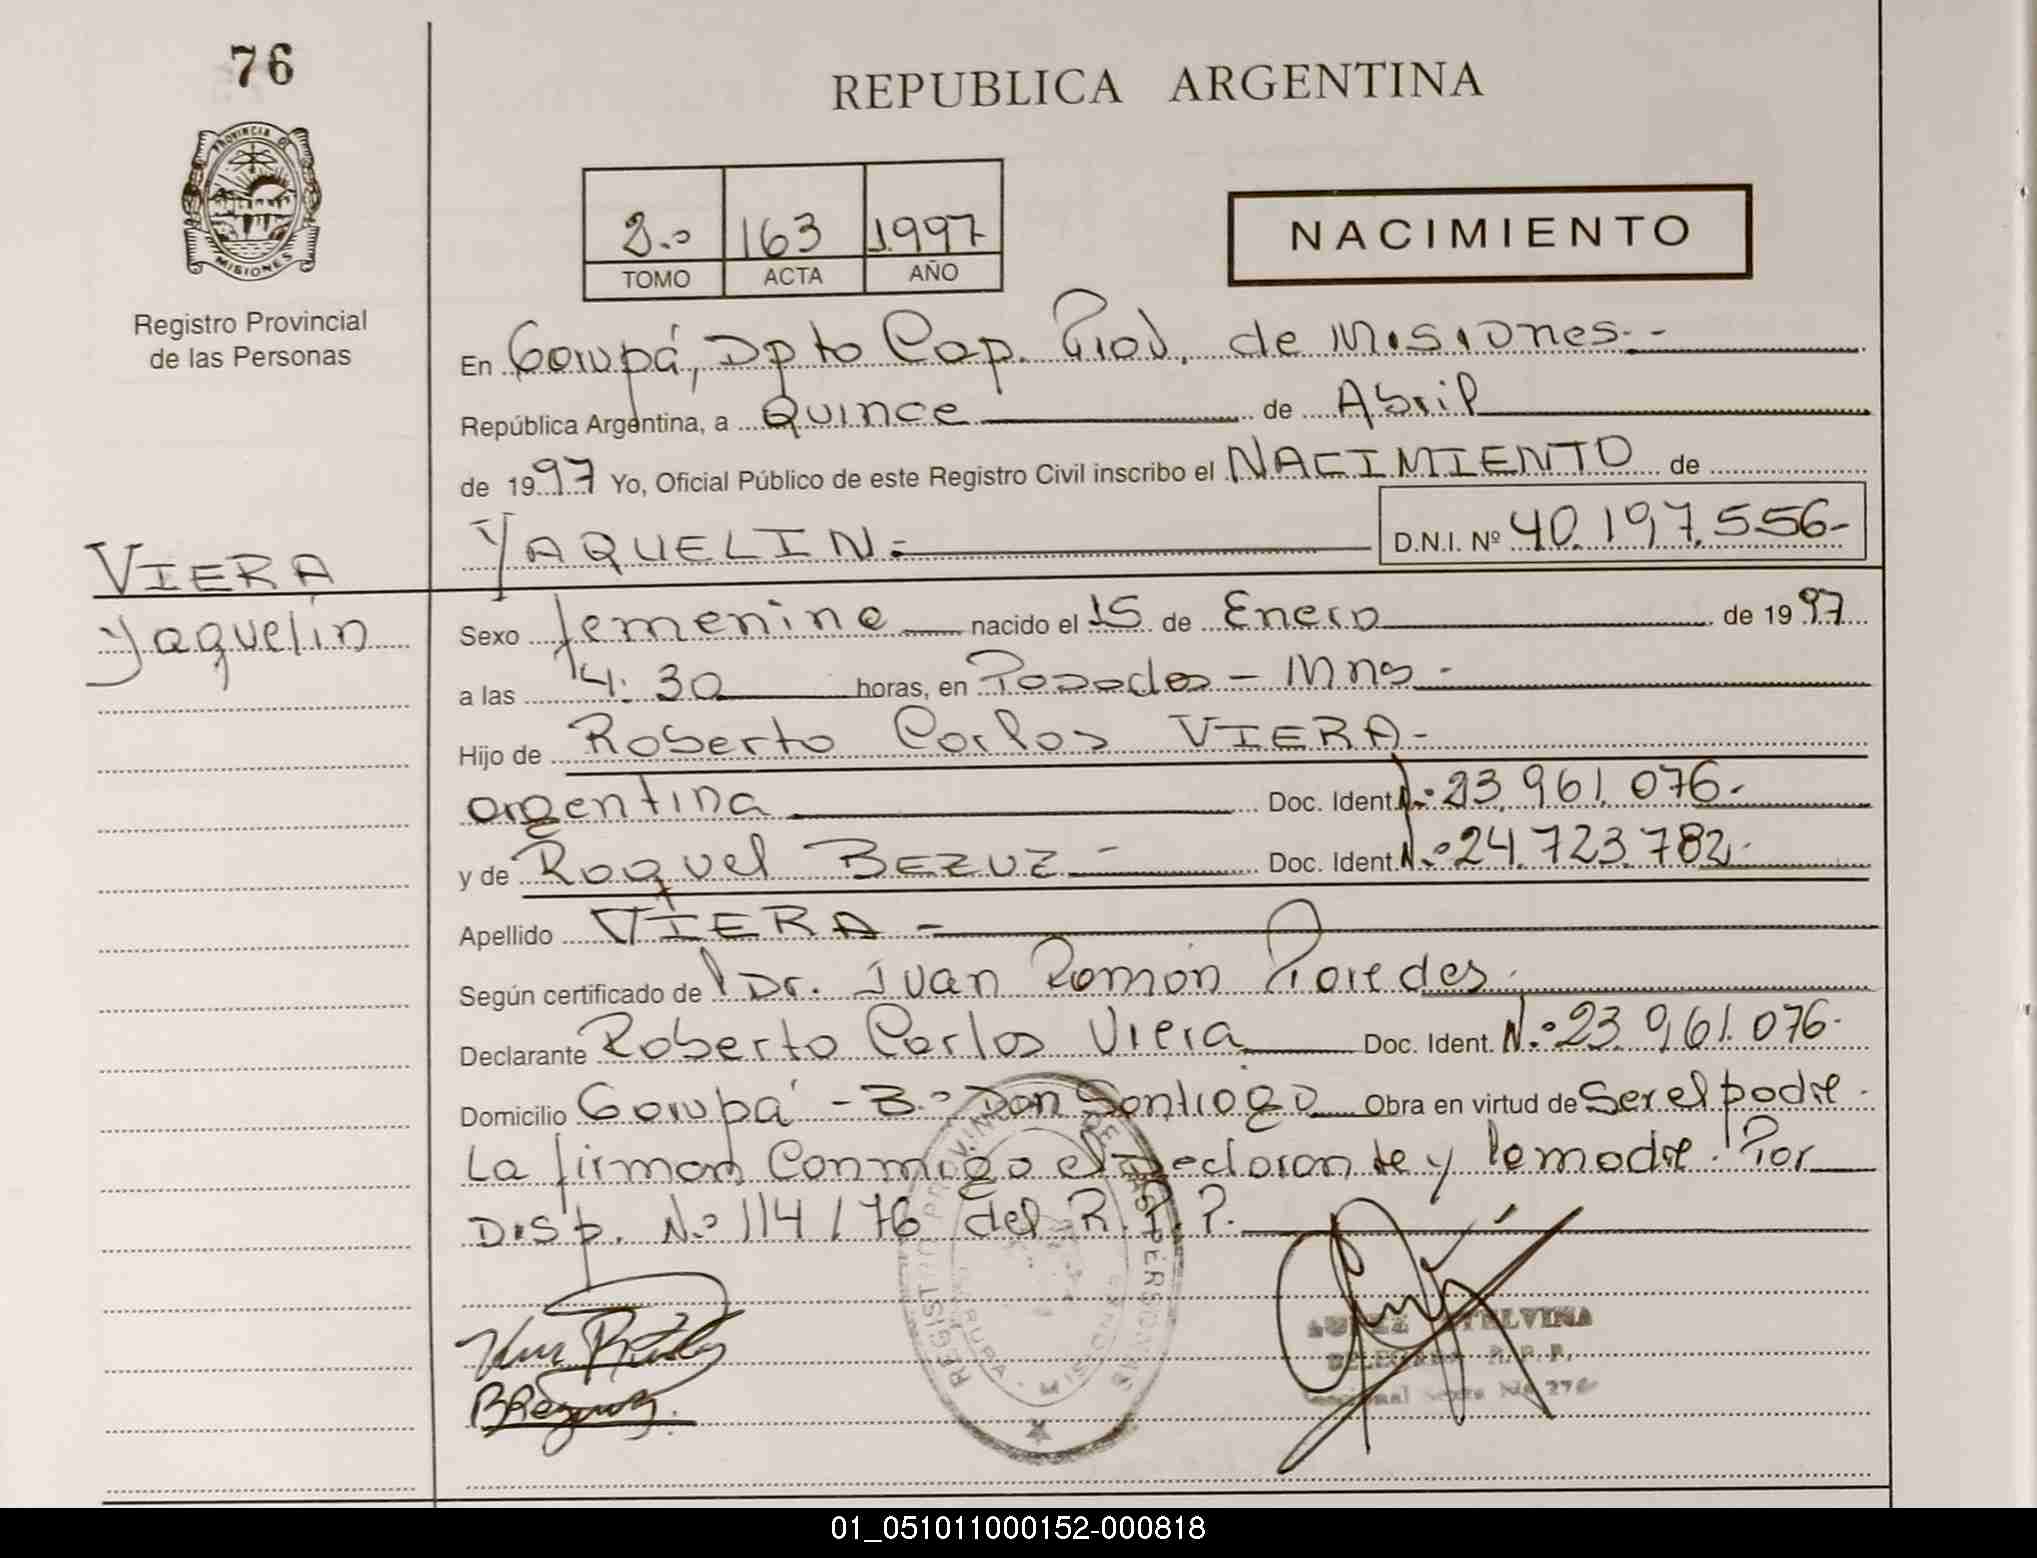 76
REPUBLICA ARGENTINA
PROVINCIA DE
MISIONES
Registro Provincial
de las Personas
2.º 163 1997
TOMO ACTA AÑO
NACIMIENTO
En Garupá, Dpto Cap. Prov. de Misiones.-
República Argentina, a Quince de Abril
de 1997 Yo, Oficial Público de este Registro Civil inscribo el NACIMIENTO de
YAQUELIN.- D.N.I. Nº 40.197.556-
VIERA
Yaquelin
Sexo femenino nacido el 15 de Enero de 1997
a las 14:30 horas, en Posadas - Mnes -
Hijo de Roberto Carlos VIERA-
argentina Doc. Ident. N.º 23.961.076-
y de Raquel BEZUZ - Doc. Ident. N.º 24.723.782-
Apellido VIERA -
Según certificado de Dr. Juan Ramón Paredes.
Declarante Roberto Carlos Viera Doc. Ident. N.º 23.961.076-
Domicilio Garupá - B.º Don Santiago Obra en virtud de Ser el padre.
La firman Conmigo el Declarante y la madre. Por
Disp. N.º 114/76 del R.P.P.
REGISTRO PROVINCIAL DE LAS PERSONAS
GARUPA - MISIONES
TELVINA
DELEGADA R.P.P.
01_051011000152-000818